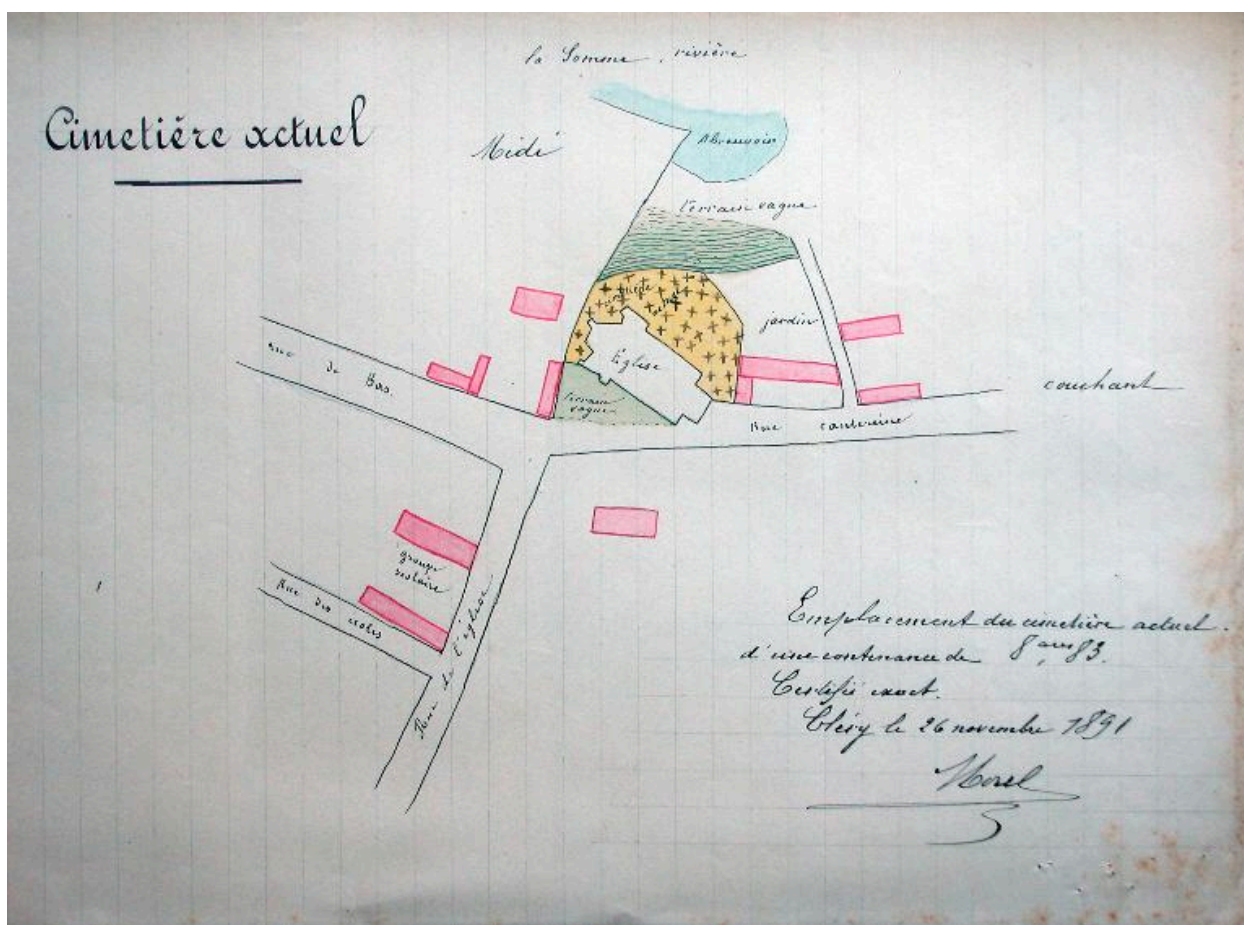 la Somme, rivière
Cimetière actuel
Midi
Abreuvoir
terrain vague
cimetière
actuel
jardin
Eglise
rue de Bas
terrain
vague
couchant
Rue cantereine
groupe
scolaire
Rue des écoles
Rue de l'église
Emplacement du cimetière actuel.
d'une contenance de 8 ares 83.
Certifié exact.
Cléry le 26 novembre 1891
Morel